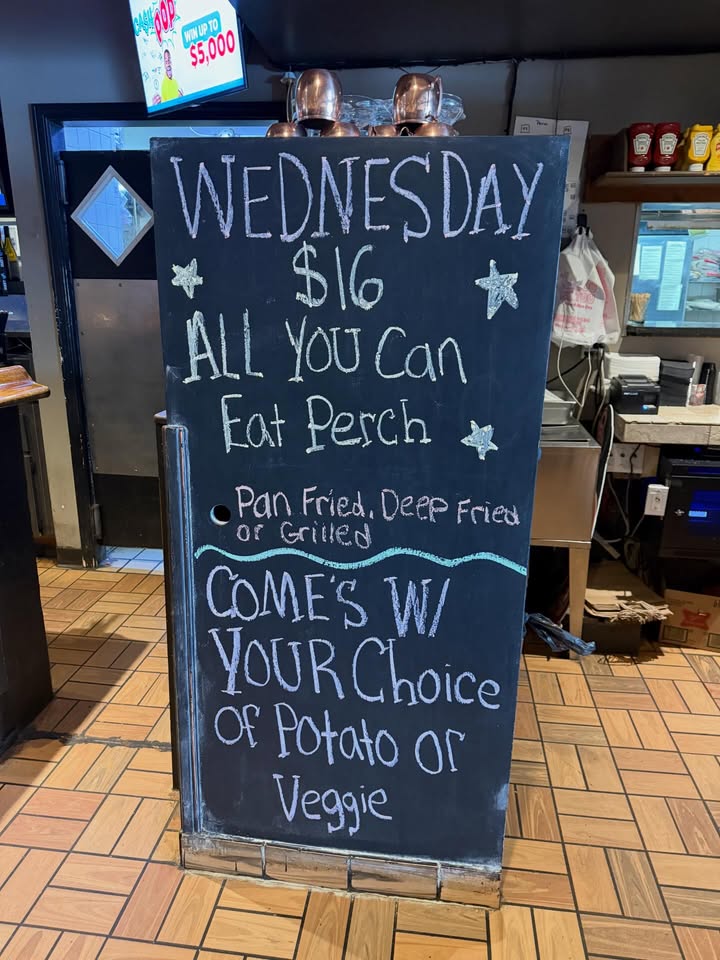 CASH POP
WIN UP TO
$5,000
WEDNESDAY
$16
ALL YOU Can
Eat Perch
Pan Fried, Deep Fried
or Grilled
COME'S W/
YOUR Choice
of Potato or
Veggie